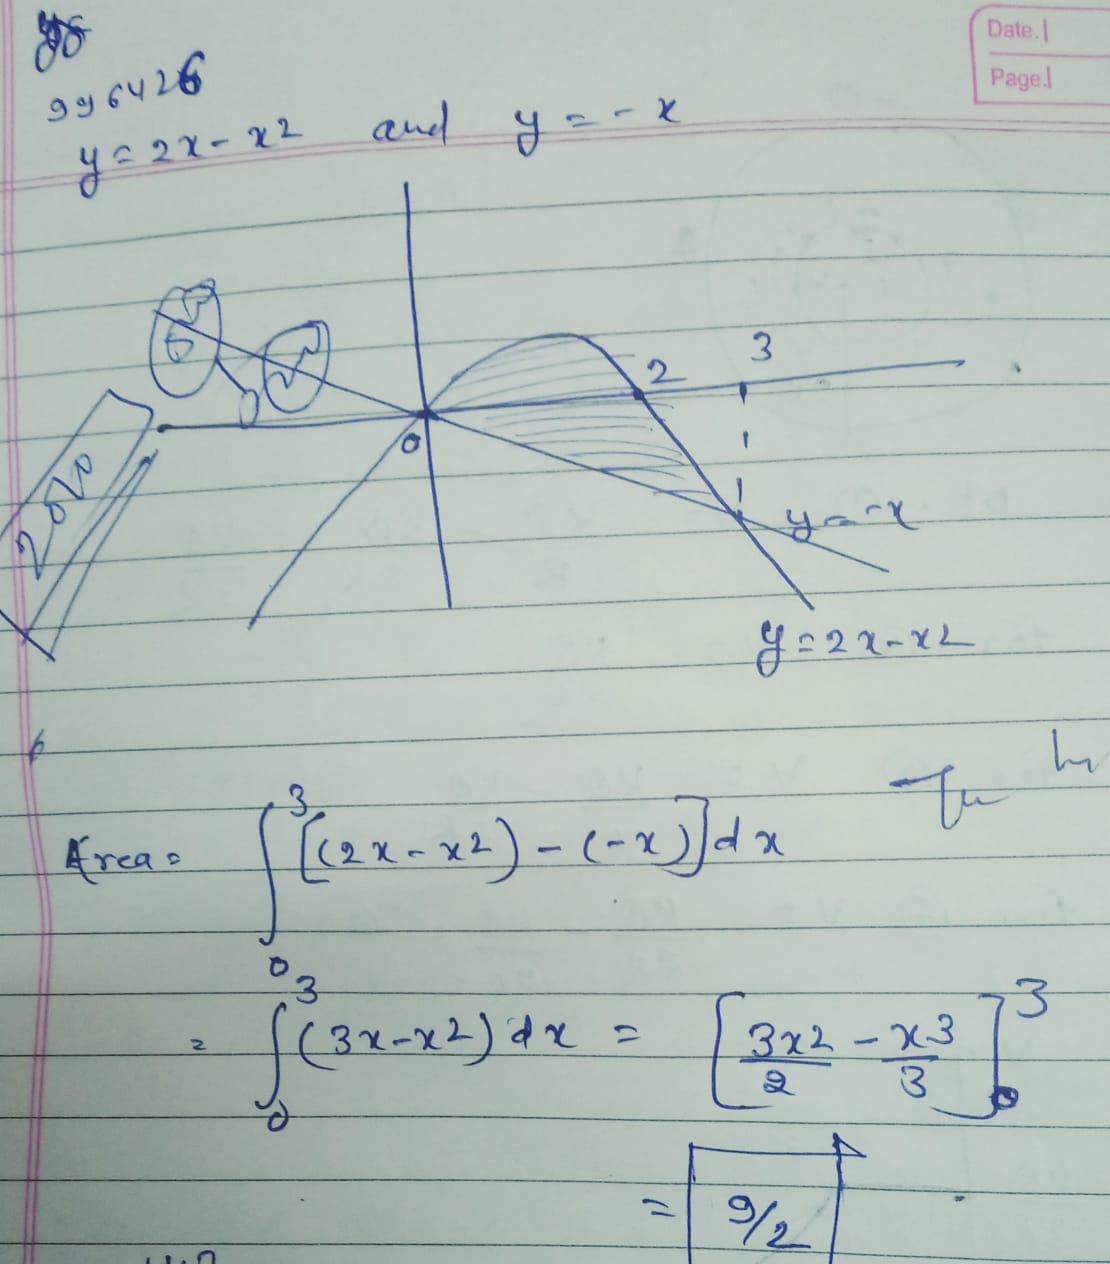 Date.
Page.
996426
y = 2x - x2 and y = - x
3
2
0
y = -x
y = 2x - x2
Area = ∫ 3 0 [(2x - x2) - (-x)] dx
= ∫ 3 0 (3x - x2) dx = [3x2/2 - x3/3] 3 0
= 9/2